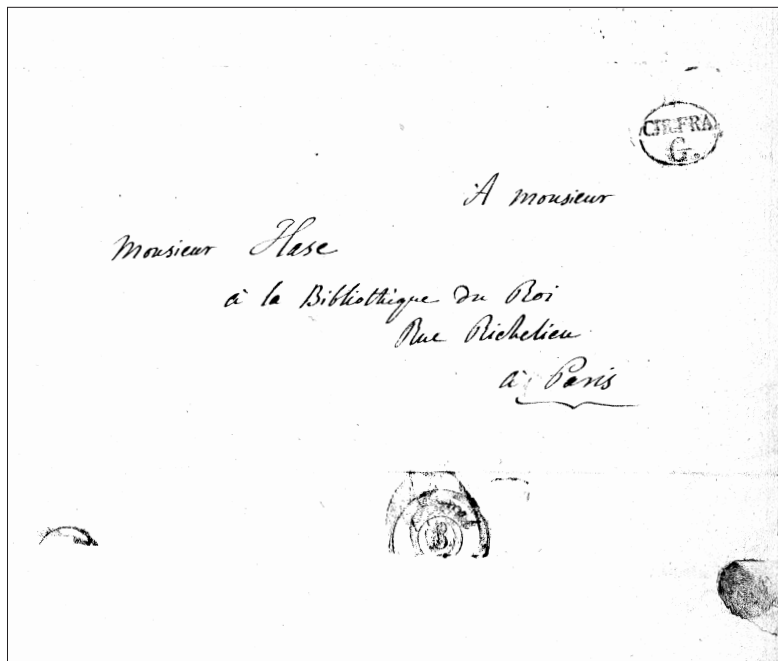 CH.FRA
G.
A monsieur
Monsieur Hase
à la Bibliothique du Roi
Rue Richelieu
à Paris
B